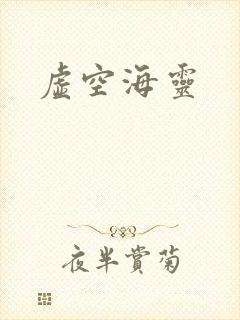 虛空海靈
夜半賞菊